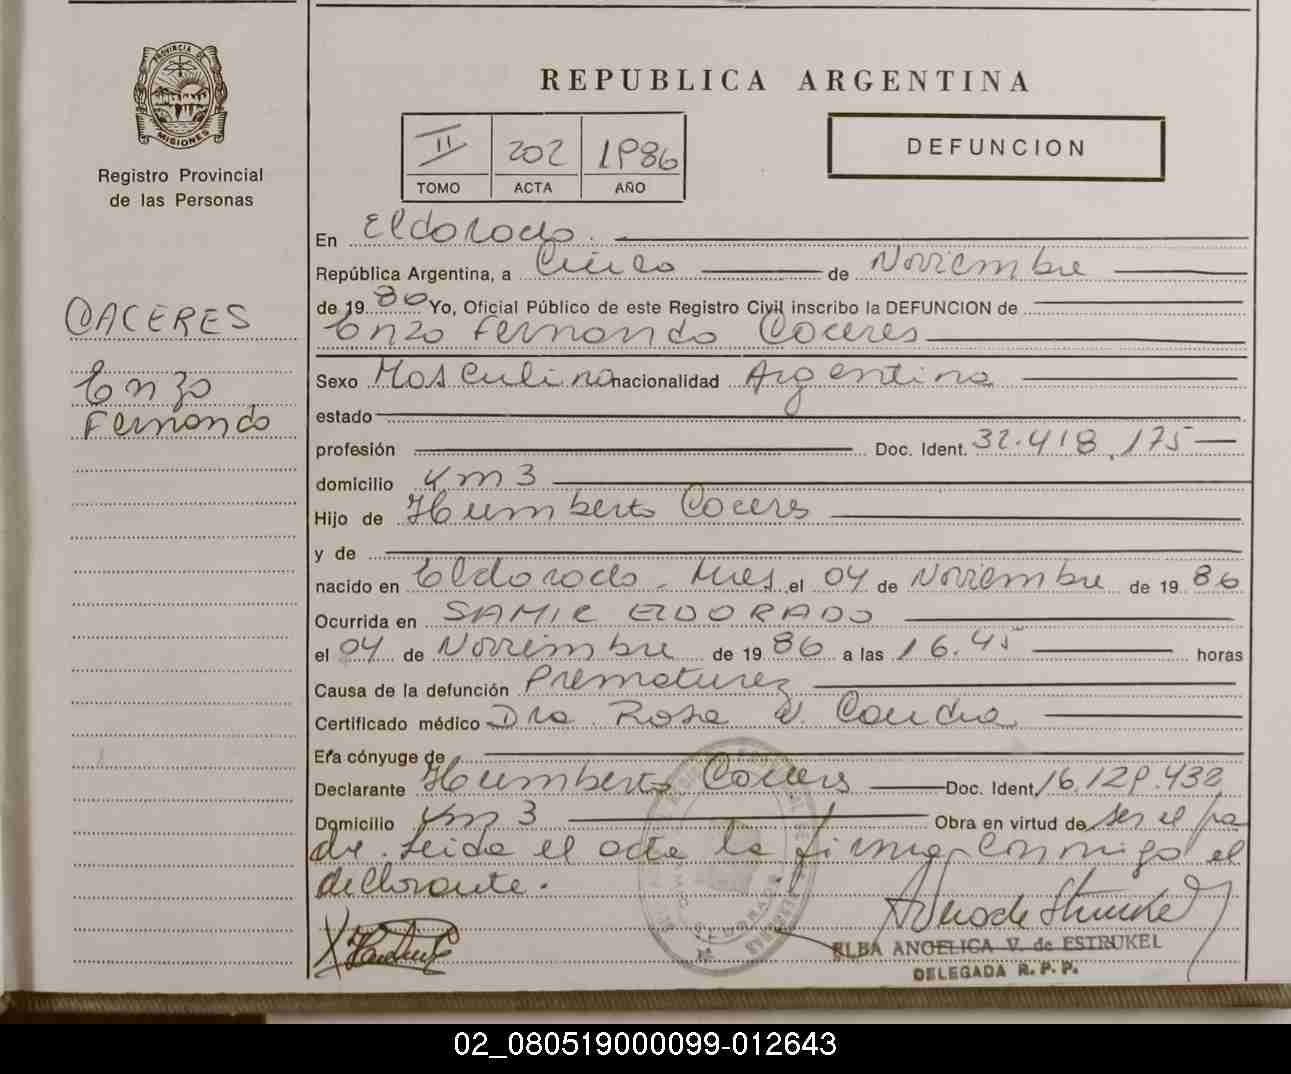 PROVINCIA DE
MISIONES
Registro Provincial
de las Personas
REPUBLICA ARGENTINA
II 202 1986
TOMO ACTA AÑO
DEFUNCION
En Eldorado.
República Argentina, a Cinco de Noviembre
de 1986 Yo, Oficial Público de este Registro Civil inscribo la DEFUNCION de
CACERES
Enzo Fernando Caceres
Enzo
Fernando
Sexo Masculino nacionalidad Argentina
estado
profesión Doc. Ident. 32.418.175
domicilio Km 3
Hijo de Humberto Caceres
y de
nacido en Eldorado - Mnes, el 04 de Noviembre de 1986
Ocurrida en SAMIC ELDORADO
el 04 de Noviembre de 1986 a las 16.45 horas
Causa de la defunción Prematurez
Certificado médico Dra. Rosa V.
Era cónyuge de
Declarante Humberto Caceres Doc. Ident. 16.129.432
Domicilio Km 3 Obra en virtud de ser el pa
dre. Leida el acta la firma conmigo el
declarante.
ELBA ANGELICA V. de ESTRUKEL
DELEGADA R. P. P.
02_080519000099-012643